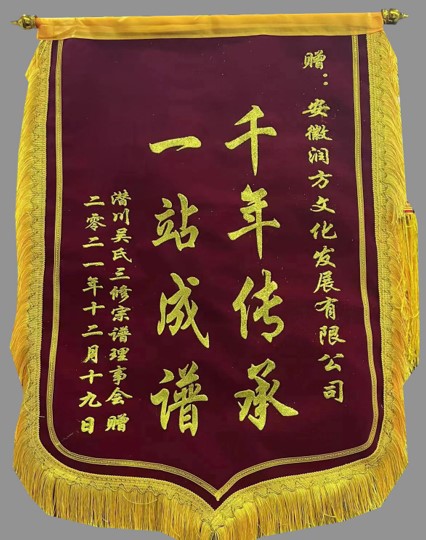 赠：安徽润方文化发展有限公司
千年传承
一站成谱
潜川吴氏三修宗谱理事会 赠
二零二一年十二月十九日